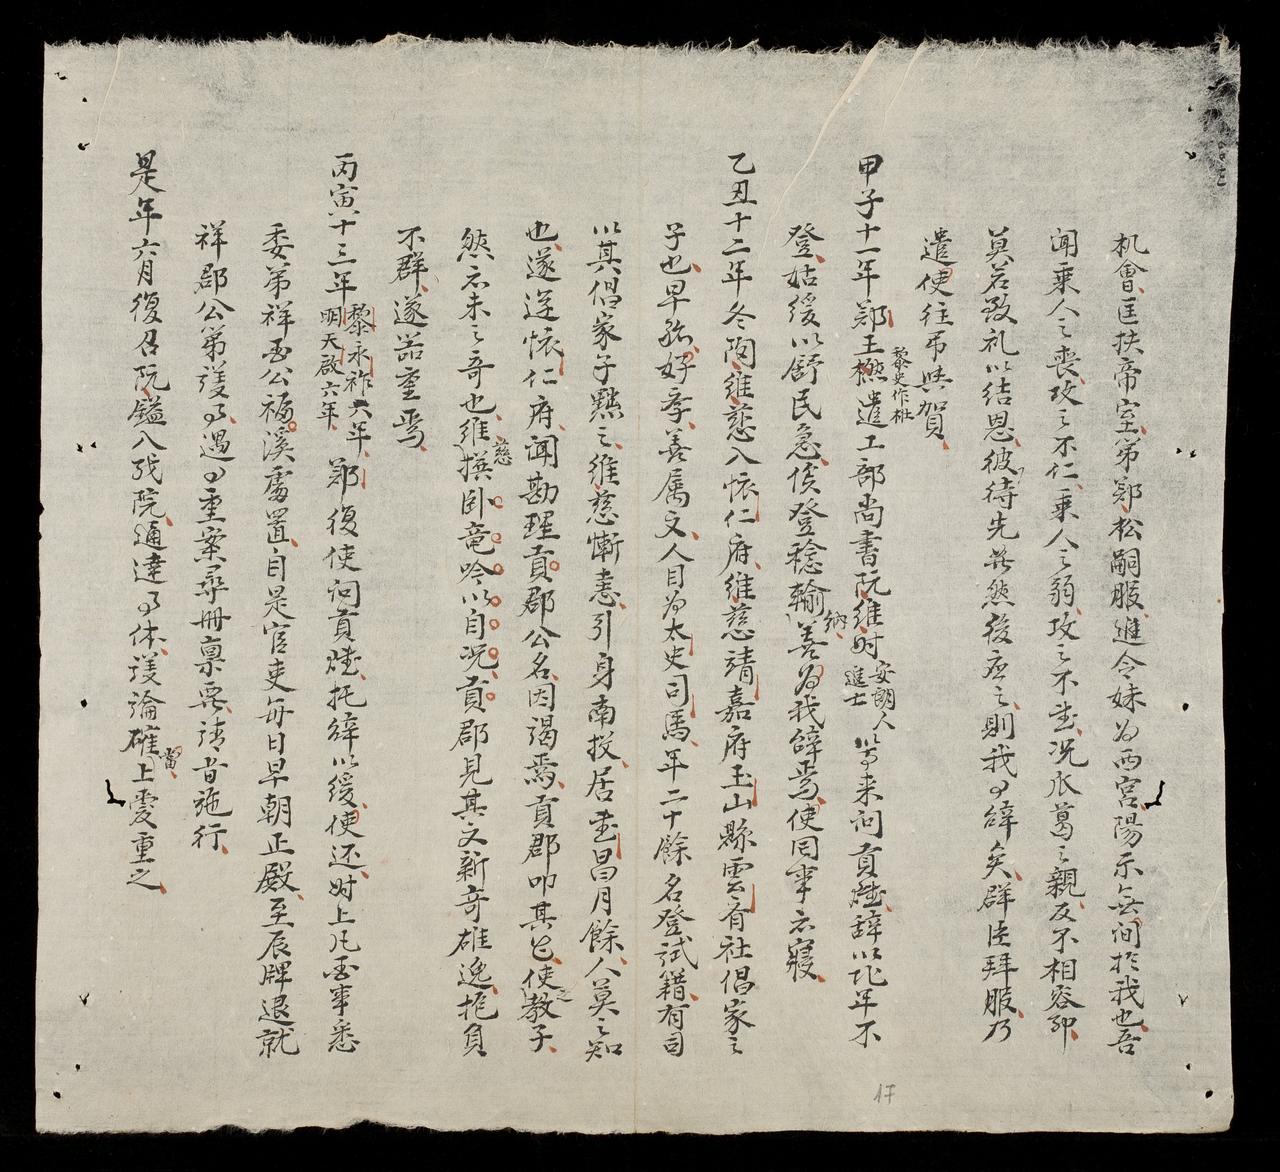 机會匡扶帝室第鄭松嗣服進令妹为西宮陽示無间於我也吾
闻乘人之喪攻之不仁乘人之弱攻之不武况瓜葛之親反不相容卽
莫若致礼以结恩彼待先施然後应之則我有辞矣群臣拜服乃
遣使往吊與賀
甲子十一年鄭王橪黎史作梉遣工部尚書阮維时安朗人進士等来问貢燵辞以比年不
登姑缓以舒民急俟登稔輸納善为我辞焉使回事亦寢
乙丑十二年冬陶維慈入懷仁府維慈靖嘉府玉山縣雲有社倡家之
子也早孤好季善属文人目为太史司馬年二十餘名登試籍有司
以其倡家子黜之維慈慚恚引身南投居武昌月餘人莫之知
也遂逕懷仁府闻勘理貢郡公名因谒焉貢郡叩其它使之教子
然亦未之奇也維慈撰卧竜吟以自况貢郡見其文新奇雄逸抱負
不群遂器重焉
丙寅十三年黎永祚六年明天啟六年鄭復使问貢燵托辞以缓使还时上凡国事悉
委第祥国公福溪處置自是官吏每日早朝正殿至辰牌退就
祥郡公第議事遇有重案录冊禀要请旨施行
是年六月復召阮鎰入政院通達事体議論確當上爱重之
17